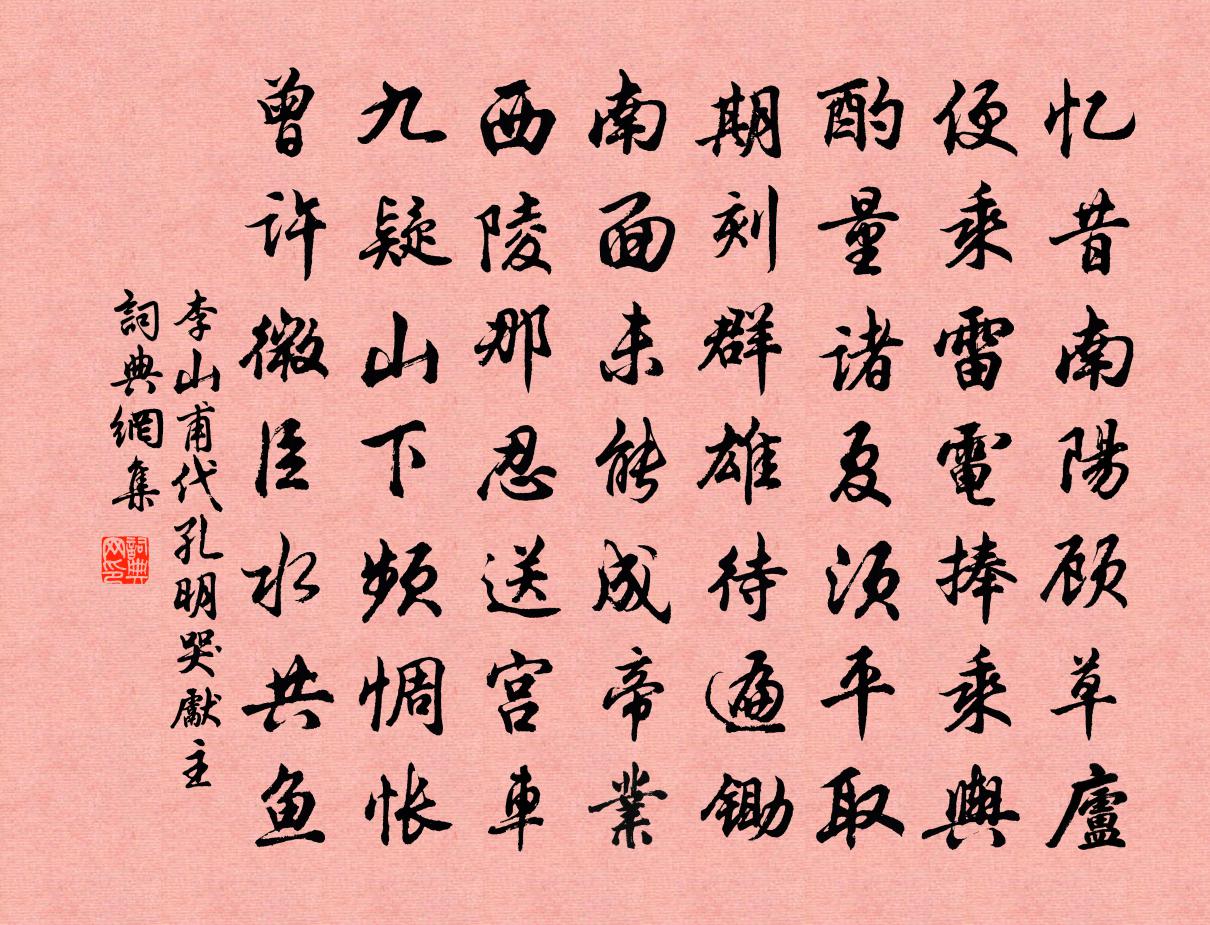 忆昔南陽顾草廬
便乘雷電捧乘輿
酌量诸夏须平取
期刻群雄待遍锄
南面未能成帝業
西陵那忍送宫車
九疑山下频惆怅
曾许微臣水共鱼
李山甫代孔明哭獻主
詞典網集